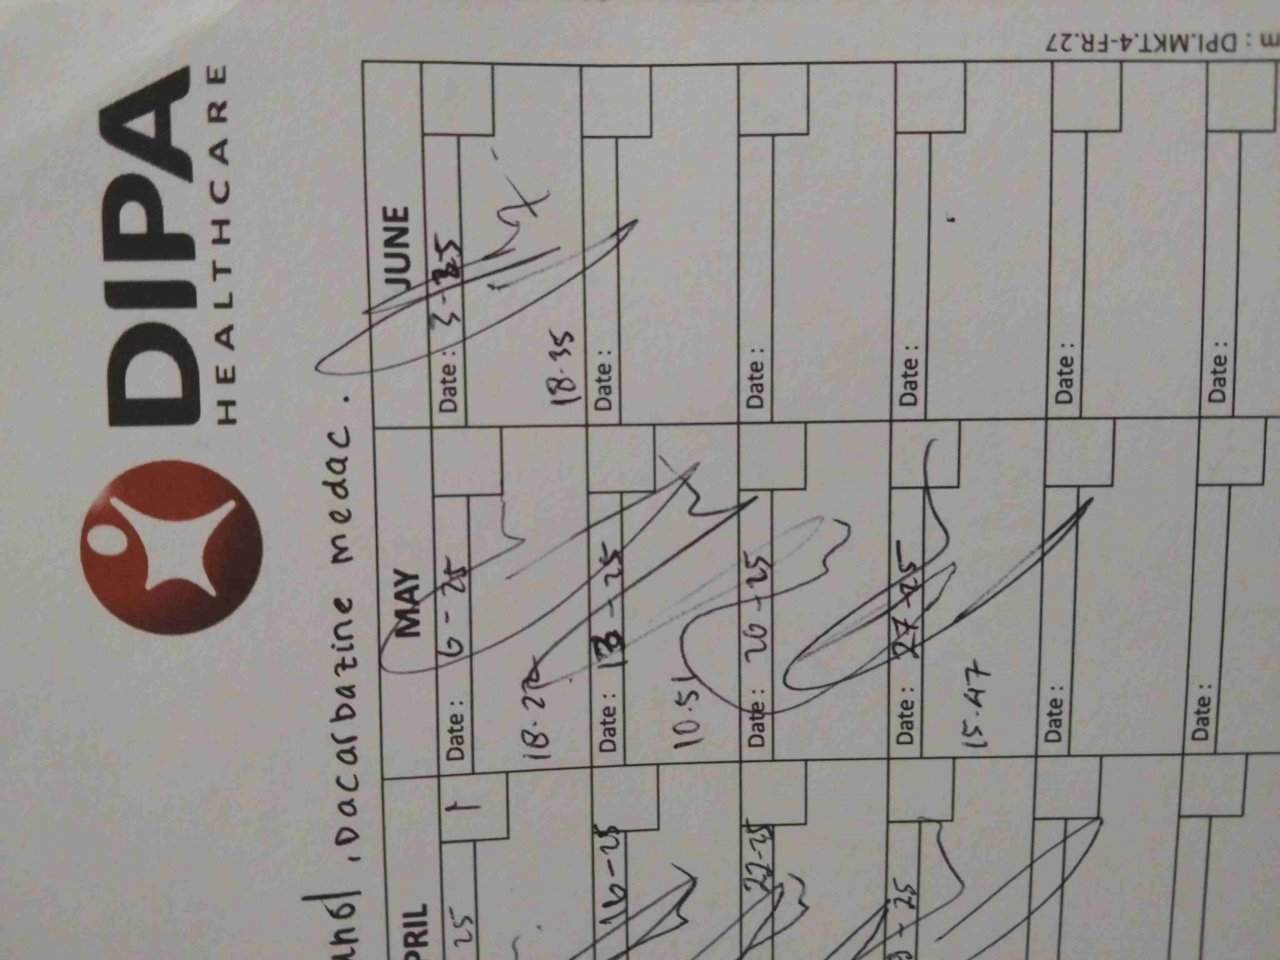 DIPA
HEALTHCARE
m : DPI.MKT.4-FR.27
, Dacarbazine medac.
PRIL
MAY
JUNE
25
1
Date : 6 - 25
Date : 3-
18.35
16-25
Date : 13 - 25
Date :
10.51
22-25
Date : 20 - 25
Date :
- 25
Date : 27-25
Date :
15.47
Date :
Date :
Date :
Date :